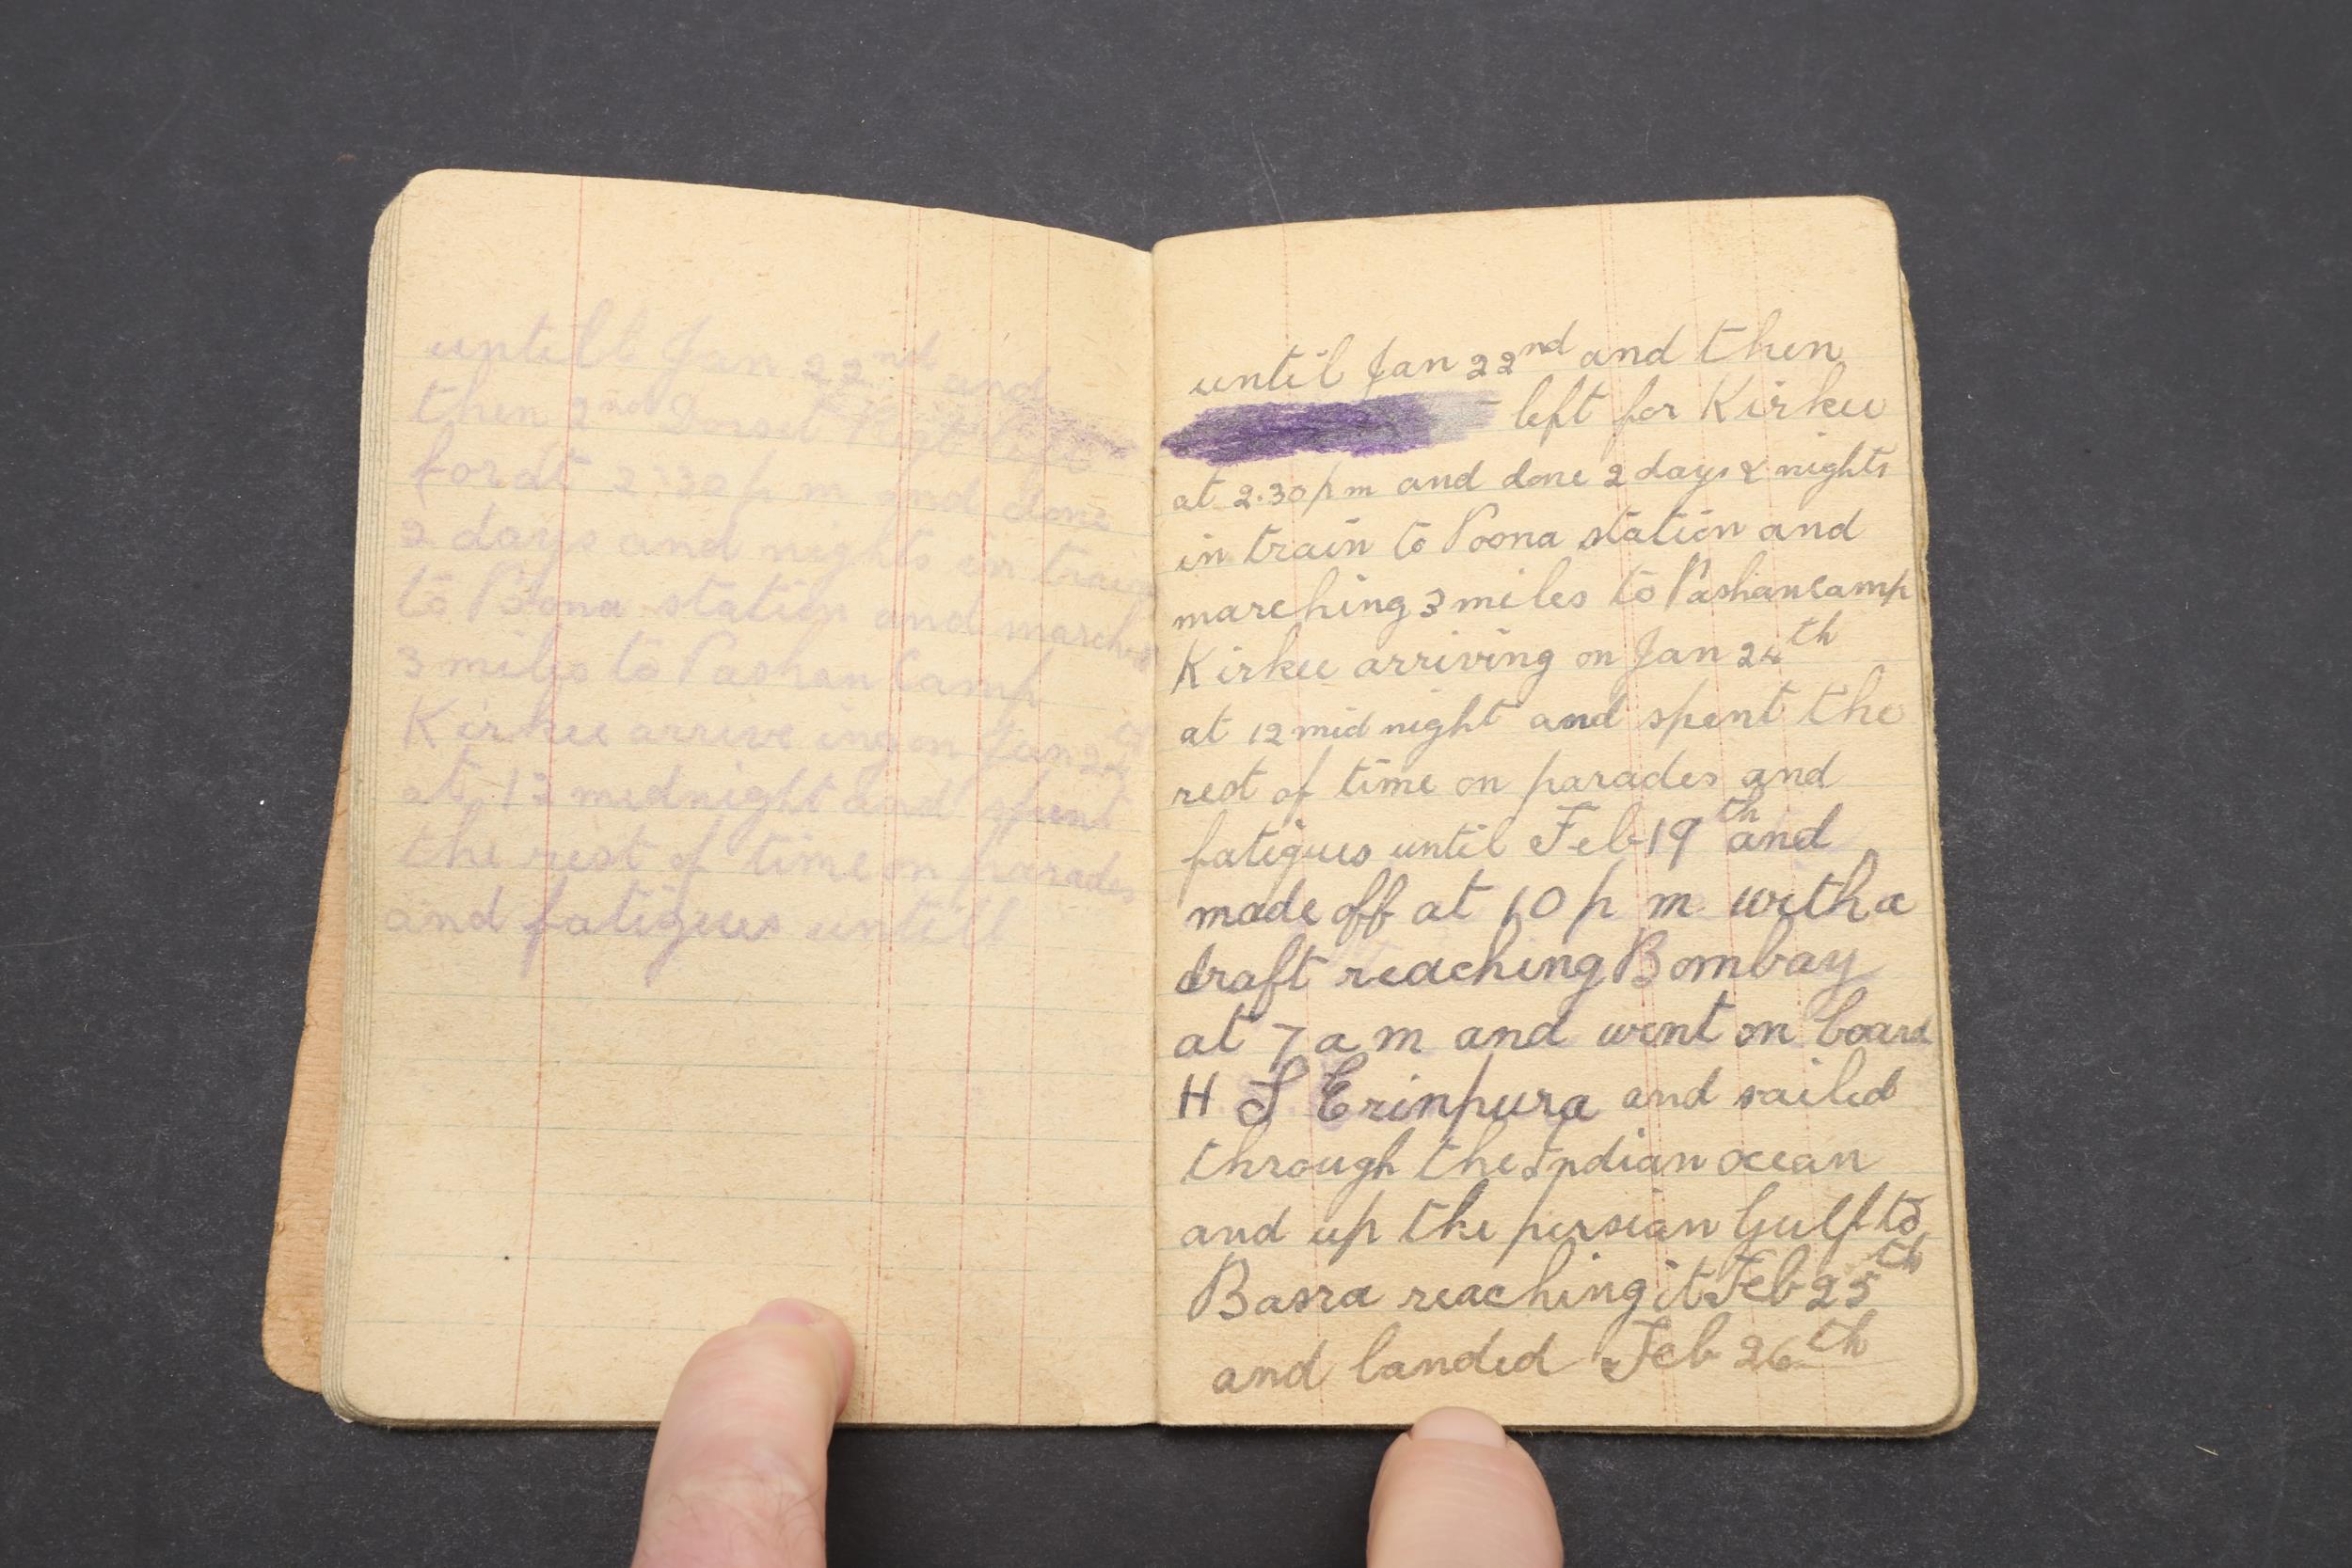 untill Jan 22nd and
then 2nd Dorset Regt left
for at 2:30 p m and done
2 days and nights in train
to Poona station and march
3 miles to Pashan Camp
Kirkee arrive ing on Jan 24
at 12 mednight and spent
the rest of time on parades
and fatigues untill
until Jan 22nd and then
left for Kirkee
at 2.30 p m and done 2 days & nights
in train to Poona station and
marching 3 miles to Pashan Camp
Kirkee arriving on Jan 24th
at 12 mid night and spent the
rest of time on parades and
fatigues until Feb 19th and
made off at 10 p m with a
draft reaching Bombay
at 7 a m and went on board
H S Erinpura and sailed
through the Indian ocean
and up the persian Gulf to
Basra reaching it Feb 25th
and landed Feb 26th